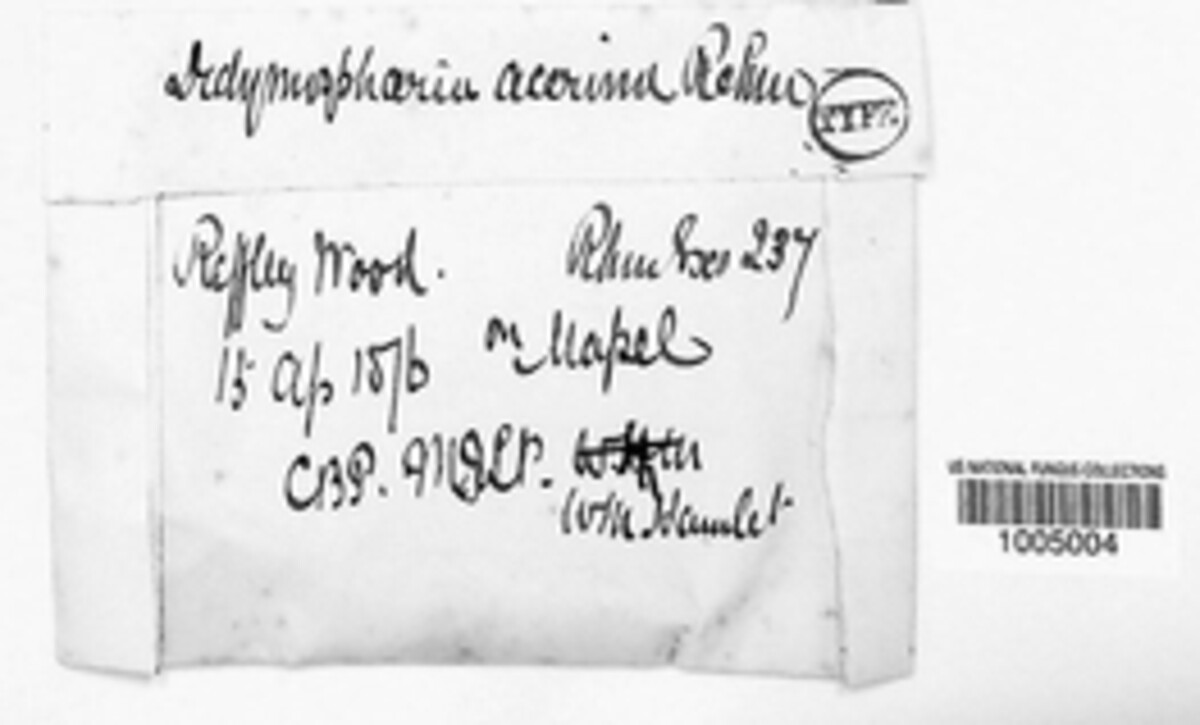 Didymosphæria acerina Rehm
TYPE.
Reffley Wood. Rehm Exs 237
15 Ap 1876 on Mapel
CBP.
Wm Hamlet
US NATIONAL FUNGUS COLLECTIONS
1005004